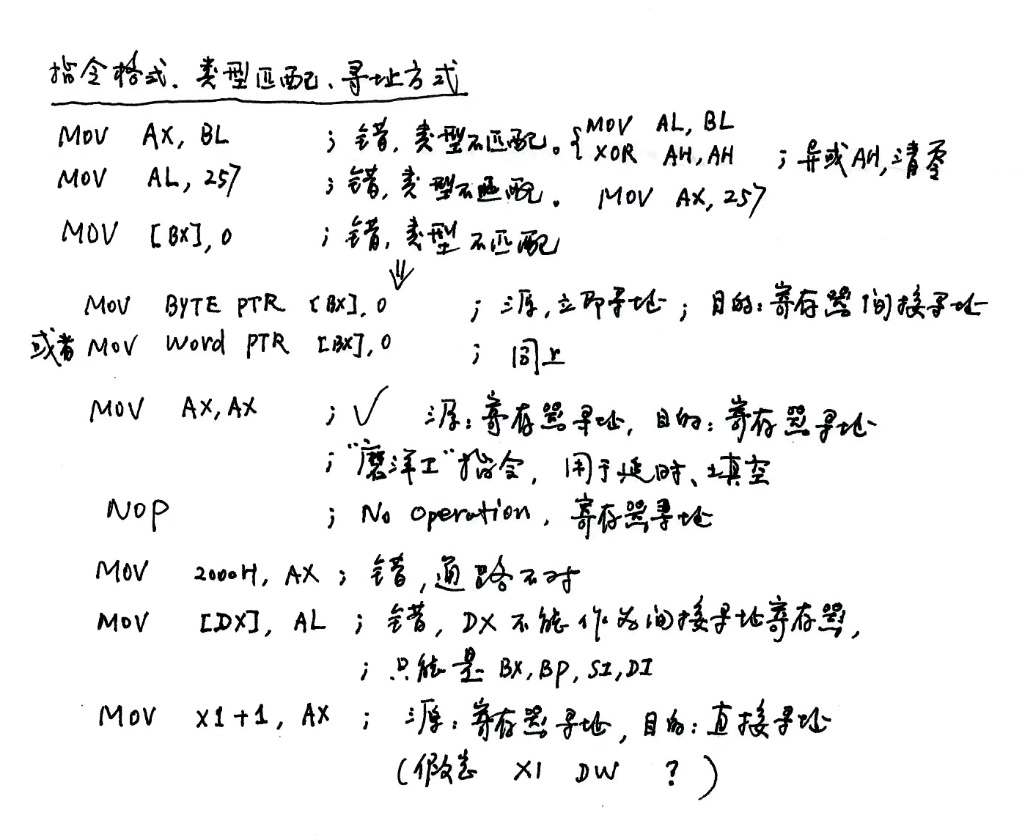 指令格式、类型匹配、寻址方式
MOV AX, BL ; 错, 类型不匹配。{ MOV AL, BL
XOR AH, AH ; 异或AH,清零
MOV AL, 257 ; 错, 类型不匹配。 MOV AX, 257
MOV [BX], 0 ; 错, 类型不匹配
⇓
MOV BYTE PTR [BX], 0 ; 源,立即寻址; 目的:寄存器间接寻址
或者 MOV Word PTR [BX], 0 ; 同上
MOV AX, AX ; √ 源:寄存器寻址, 目的:寄存器寻址
; "磨洋工"指令, 用于延时、填空
NOP ; No operation, 寄存器寻址
MOV 2000H, AX ; 错,通路不对
MOV [DX], AL ; 错, DX不能作为间接寻址寄存器,
; 只能是 BX, BP, SI, DI
MOV X1+1, AX ; 源:寄存器寻址, 目的:直接寻址
(假定 X1 DW ? )